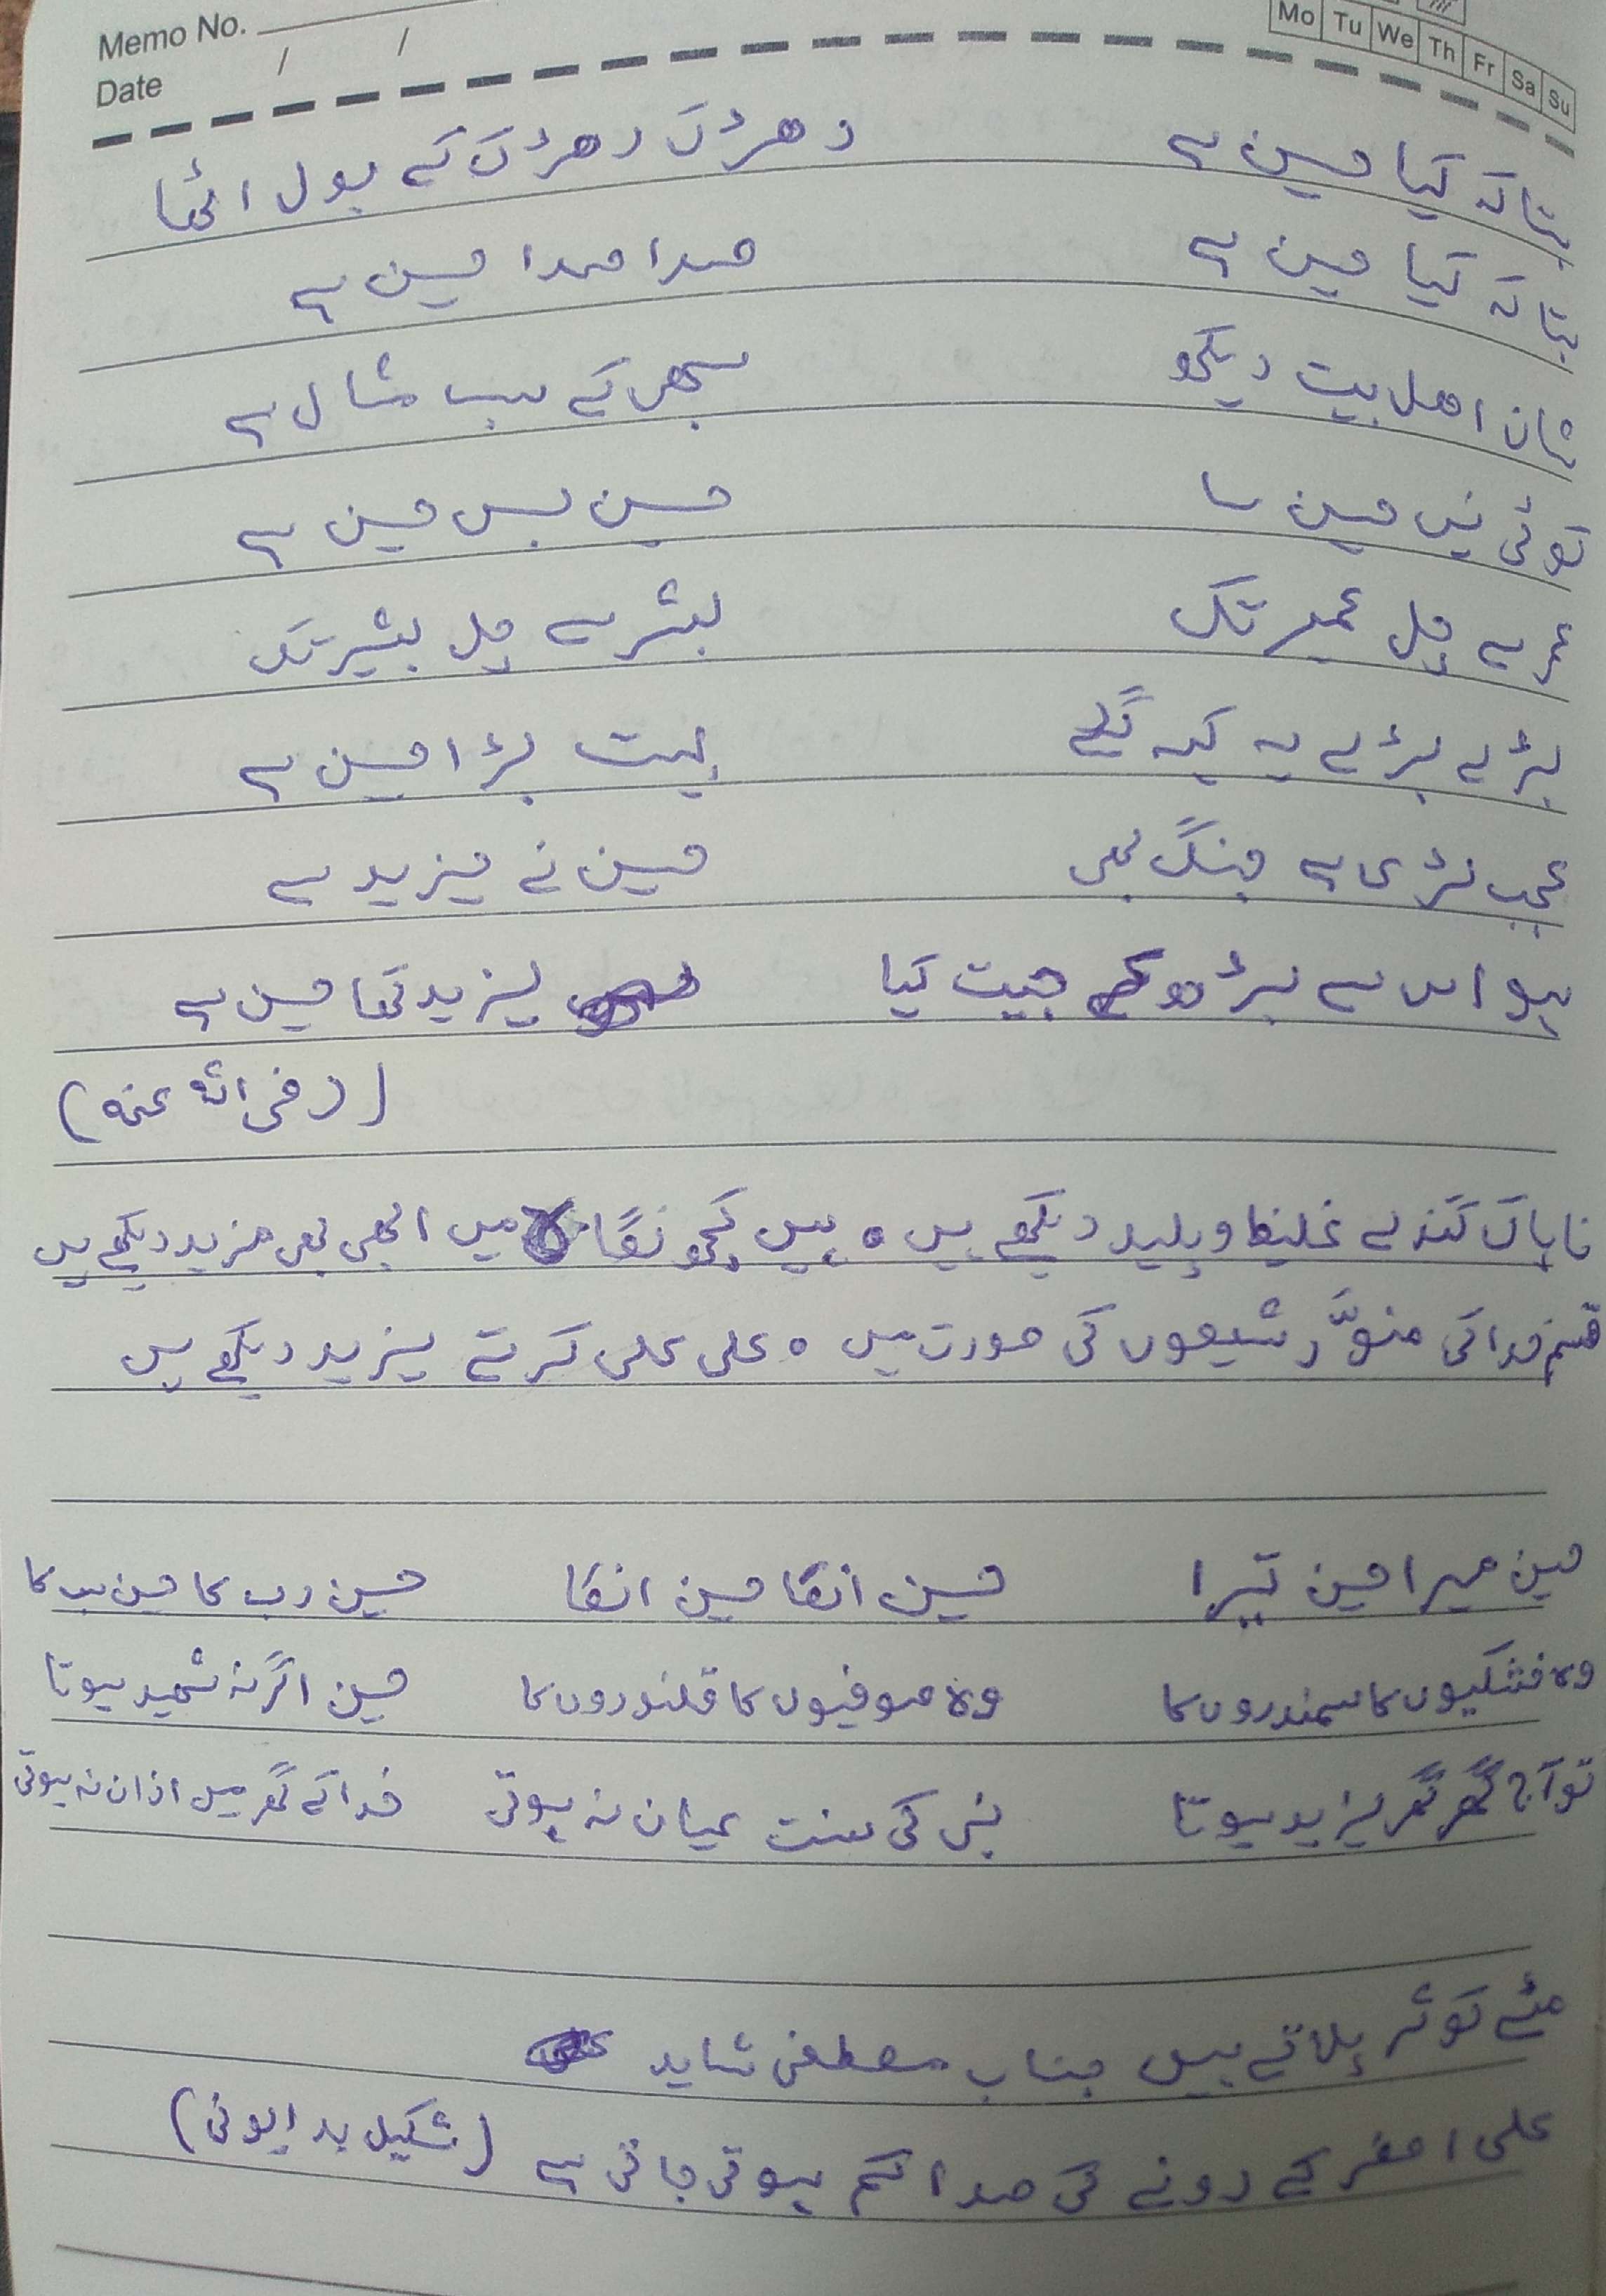 Memo No.
Date / /
Mo Tu We Th Fr Sa Su
بتا کہ کیا حسین ہے دھڑک دھڑک کے بول اٹھا
بتا کہ کیا حسین ہے صدا صدا حسین ہے
شان اھل بیت دیکھو سبھی کے سب مثال ہے
کوئی نہیں حسین سا حسین بس حسین ہے
عمر سے چل عمیر تک بشر سے چل بشیر تک
بڑے بڑے یہ کہہ گئے بہت بڑا حسین ہے
عجب لڑی ہے جنگ بھی حسین نے یزید سے
ہو اس سے بڑھ کے جیت کیا یزید تھا حسین ہے
(رضی اللہ عنہ)
ناپاک گندے غلیظ و پلید دیکھے ہیں ٥ ہیں کچھ نگاہ میں ابھی بھی مزید دیکھے ہیں
قسم خدا کی منوَّر شیعوں کی صورت میں ٥ علی علی کرتے یزید دیکھے ہیں
حسین میرا حسین تیرا حسین انکا حسین انکا حسین رب کا حسین سب کا
وہ خشکیوں کا سمندروں کا وہ صوفیوں کا قلندروں کا حسین اگر نہ شہید ہوتا
تو آج گھر گھر یزید ہوتا نبی کی سنت عیان نہ ہوتی خدا کے گھر میں اذان نہ ہوتی
مئے کوثر پلاتے ہیں جناب مصطفی شاید
علی اصغر کے رونے کی صدا کم ہوتی جاتی ہے (شکیل بدایونی)